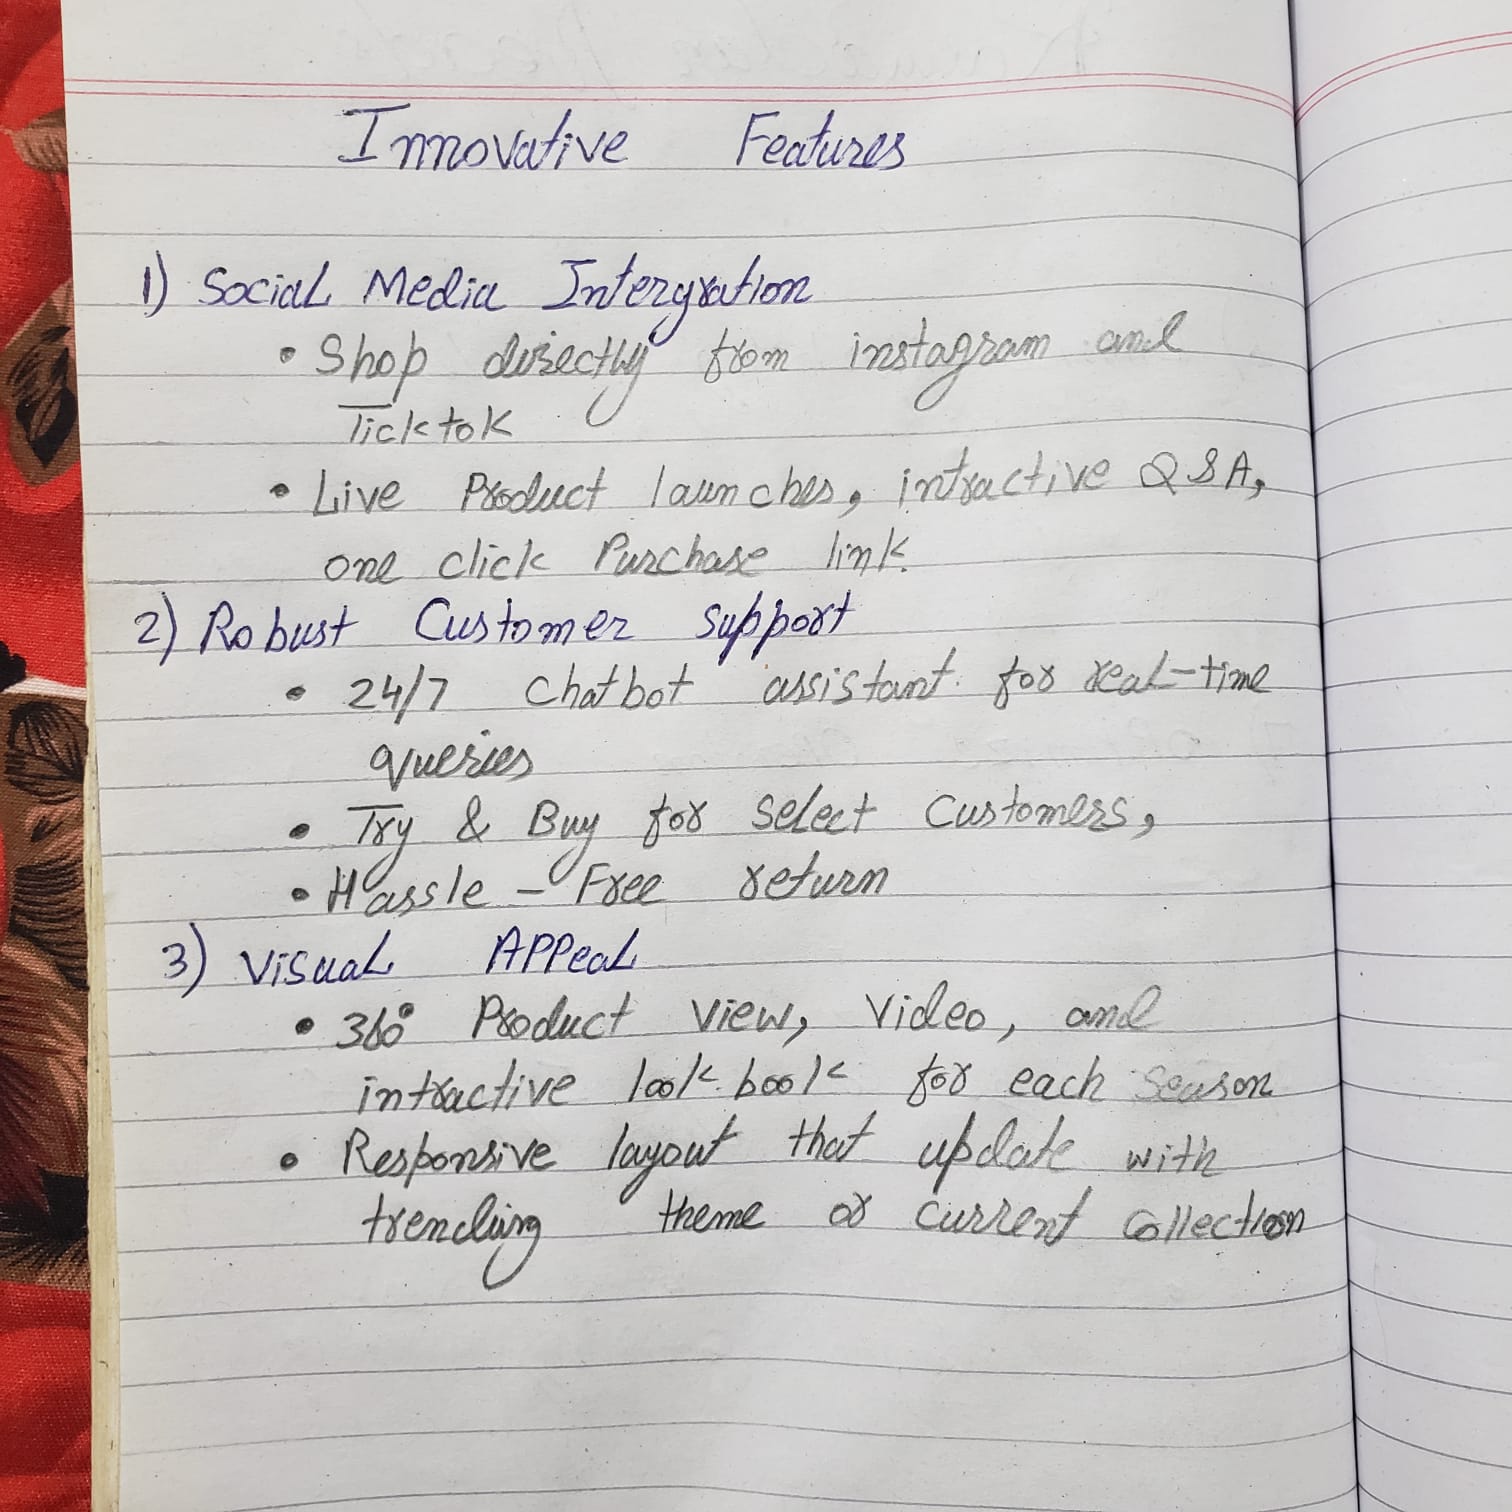 Innovative Features
1) Social Media Intergration
• Shop directly from instagram and
Ticktok
• Live Product launches, intractive Q & A,
one click Purchase link.
2) Robust Customer Support
• 24/7 Chatbot assistant for real-time
queries
• Try & Buy for Select Customers,
• Hassle - Free return
3) Visual Appeal
• 360° Product view, Video, and
intractive look book for each Season
• Responsive layout that update with
trending theme or current Collection